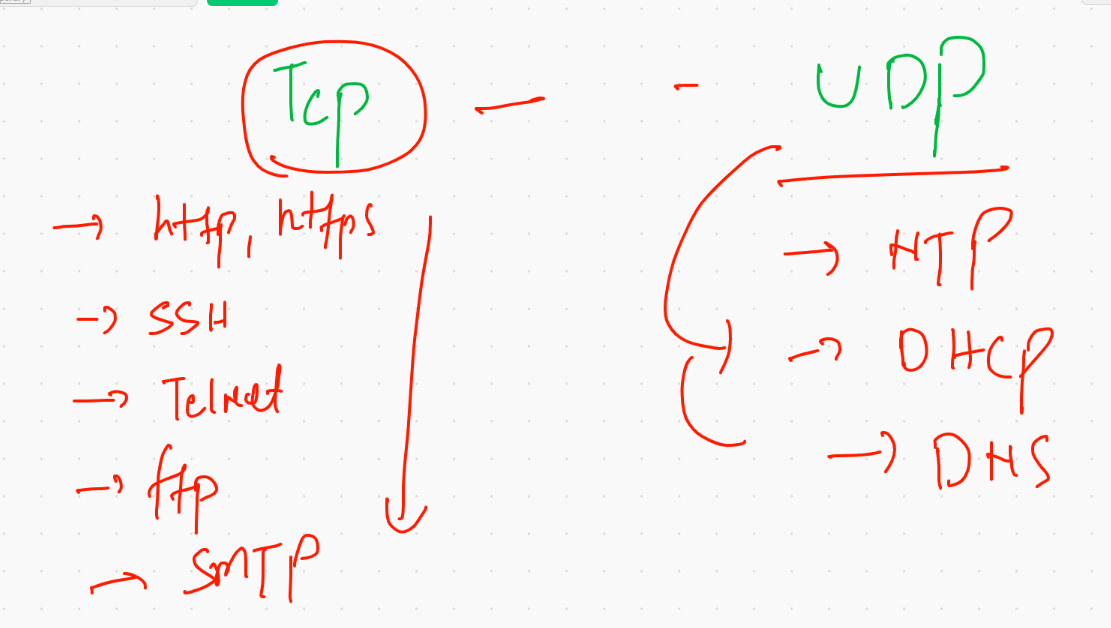 Tcp
UDP
→ http, https
→ SSH
→ Telnet
→ ftp
→ SMTP
→ NTP
→ DHCP
→ DNS